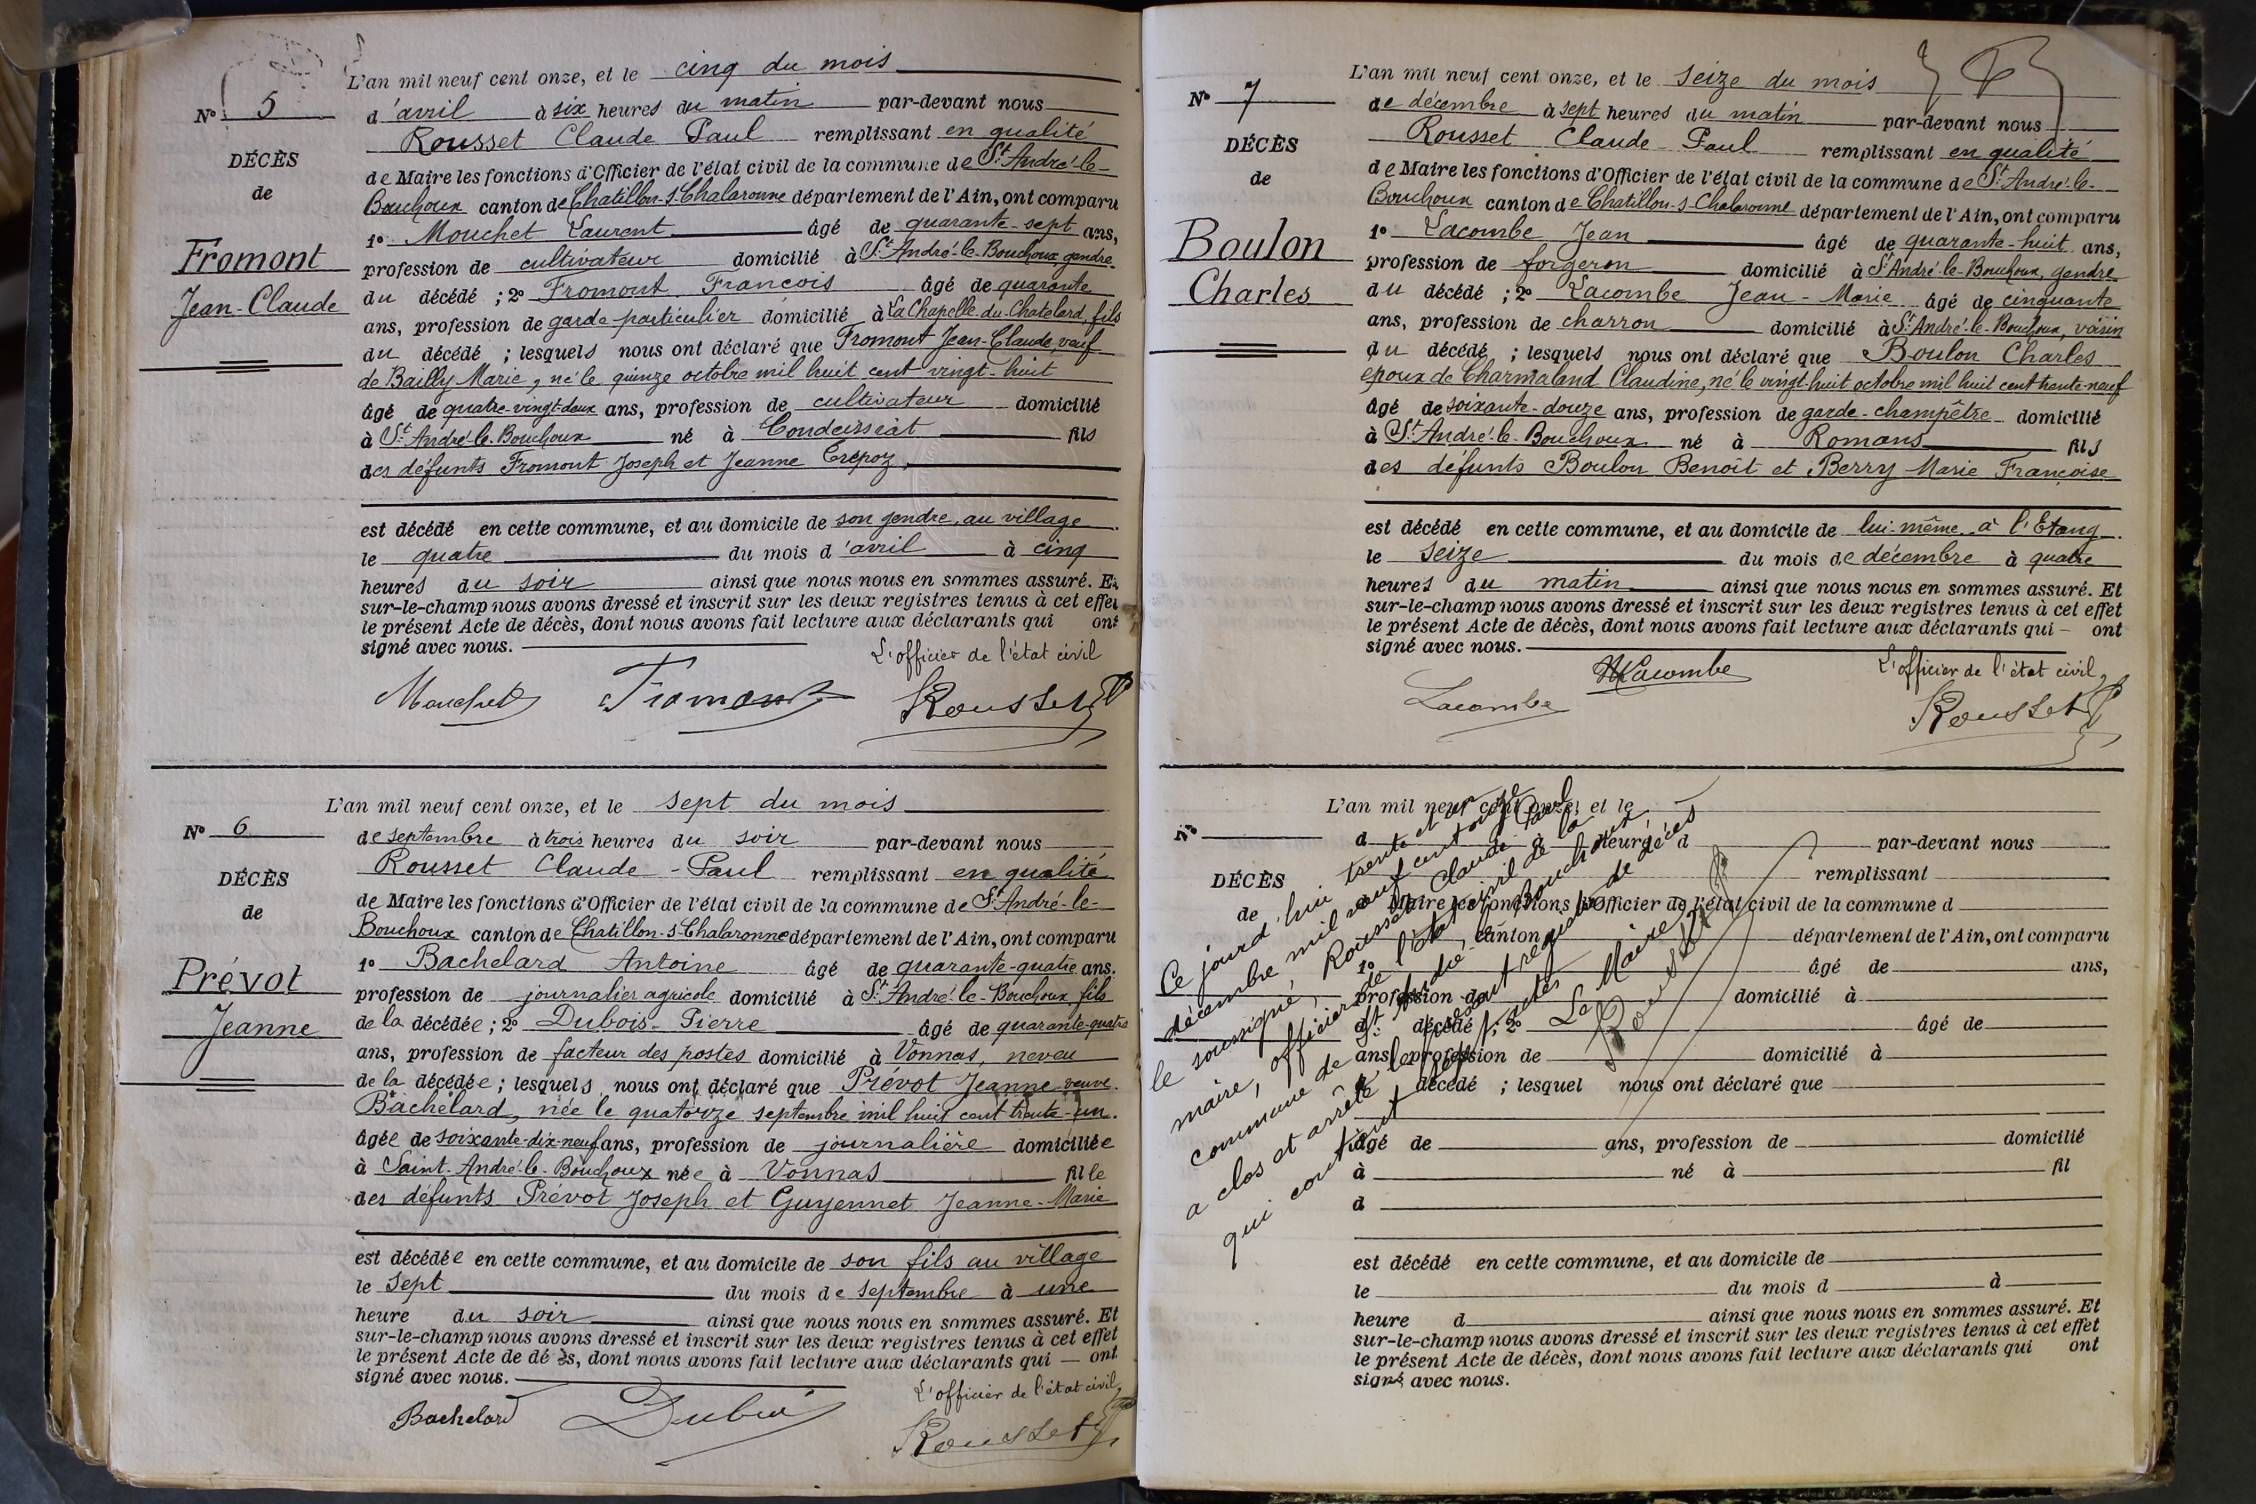 L'an mil neuf cent onze, et le cinq du mois
N° 5
d'avril à six heures du matin par-devant nous
Rousset Claude Paul remplissant en qualité
DÉCÈS
de Maire les fonctions d'Officier de l'état civil de la commune de St André-le-
de
Bouchoux canton de Chatillon-s-Chalaronne département de l'Ain, ont comparu
1° Mouchet Laurent âgé de quarante-sept ans,
Fromont
profession de cultivateur domicilié à St André-le-Bouchoux gendre
Jean-Claude
du décédé ; 2° Fromont François âgé de quarante
ans, profession de garde particulier domicilié à La Chapelle-du-Chatelard, fils
du décédé ; lesquels nous ont déclaré que Fromont Jean-Claude, veuf
de Bailly Marie, né le quinze octobre mil huit cent vingt-huit
âgé de quatre-vingt-deux ans, profession de cultivateur domicilié
à St André-le-Bouchoux né à Condeissiat fils
des défunts Fromont Joseph et Jeanne Crépoz,
est décédé en cette commune, et au domicile de son gendre, au village
le quatre du mois d'avril à cinq
heures du soir ainsi que nous nous en sommes assuré. Et
sur-le-champ nous avons dressé et inscrit sur les deux registres tenus à cet effet
le présent Acte de décès, dont nous avons fait lecture aux déclarants qui ont
signé avec nous.
L'officier de l'état civil
Mouchet Fromont Rousset
L'an mil neuf cent onze, et le sept du mois
N° 6
de septembre à trois heures du soir par-devant nous
Rousset Claude-Paul remplissant en qualité
DÉCÈS
de Maire les fonctions d'Officier de l'état civil de la commune de St André-le-
de
Bouchoux canton de Chatillon-s-Chalaronne département de l'Ain, ont comparu
1° Bachelard Antoine âgé de quarante-quatre ans.
Prévot
profession de journalier agricole domicilié à St André-le-Bouchoux fils
Jeanne
de la décédée ; 2° Dubois Pierre âgé de quarante-quatre
ans, profession de facteur des postes domicilié à Vonnas, neveu
de la décédée ; lesquels nous ont déclaré que Prévot Jeanne veuve
Bachelard, née le quatorze septembre mil huit cent trente-un.
âgée de soixante-dix-neuf ans, profession de journalière domiciliée
à Saint-André-le-Bouchoux née à Vonnas fille
des défunts Prévot Joseph et Guyennet Jeanne-Marie
est décédée en cette commune, et au domicile de son fils au village
le sept du mois de septembre à une
heure du soir ainsi que nous nous en sommes assuré. Et
sur-le-champ nous avons dressé et inscrit sur les deux registres tenus à cet effet
le présent Acte de dé ès, dont nous avons fait lecture aux déclarants qui — ont
signé avec nous.
L'officier de l'état civil
Bachelard Dubois Rousset
L'an mil neuf cent onze, et le seize du mois
N° 7
de décembre à sept heures du matin par-devant nous
Rousset Claude-Paul remplissant en qualité
DÉCÈS
de Maire les fonctions d'Officier de l'état civil de la commune de St André-le-
de
Bouchoux canton de Chatillon-s-Chalaronne département de l'Ain, ont comparu
1° Lacombe Jean âgé de quarante-huit ans,
Boulon
profession de forgeron domicilié à St André-le-Bouchoux, gendre
Charles
du décédé ; 2° Lacombe Jean-Marie âgé de cinquante
ans, profession de charron domicilié à St André-le-Bouchoux, voisin
du décédé ; lesquels nous ont déclaré que Boulon Charles
époux de Charmaland Claudine, né le vingt-huit octobre mil huit cent trente-neuf
âgé de soixante-douze ans, profession de garde-champêtre domicilié
à St André-le-Bouchoux né à Romans fils
des défunts Boulon Benoît et Berry Marie Françoise
est décédé en cette commune, et au domicile de lui-même à l'Etang
le seize du mois de décembre à quatre
heures du matin ainsi que nous nous en sommes assuré. Et
sur-le-champ nous avons dressé et inscrit sur les deux registres tenus à cet effet
le présent Acte de décès, dont nous avons fait lecture aux déclarants qui — ont
signé avec nous.
L'officier de l'état civil,
Lacombe Lacombe Rousset
L'an mil neuf cent onze, et le
N°
d à heure d par-devant nous
remplissant
DÉCÈS
d Maire les fonctions d'Officier de l'état civil de la commune d
de
canton département de l'Ain, ont comparu
1° âgé de ans,
profession de domicilié à
d décédé ; 2° âgé de
ans, profession de domicilié à
d décédé ; lesquel nous ont déclaré que
âgé de ans, profession de domicilié
à né à fil
d
est décédé en cette commune, et au domicile de
le du mois d à
heure d ainsi que nous nous en sommes assuré. Et
sur-le-champ nous avons dressé et inscrit sur les deux registres tenus à cet effet
le présent Acte de décès, dont nous avons fait lecture aux déclarants qui ont
signé avec nous.
Ce jourd'hui trente et un
décembre mil neuf cent onze
le soussigné, Rousset Claude Paul
maire, officier de l'état civil de la
commune de St André-le-Bouchoux,
a clos et arrêté le présent registre de décès
qui contient sept actes
Le Maire,
Rousset